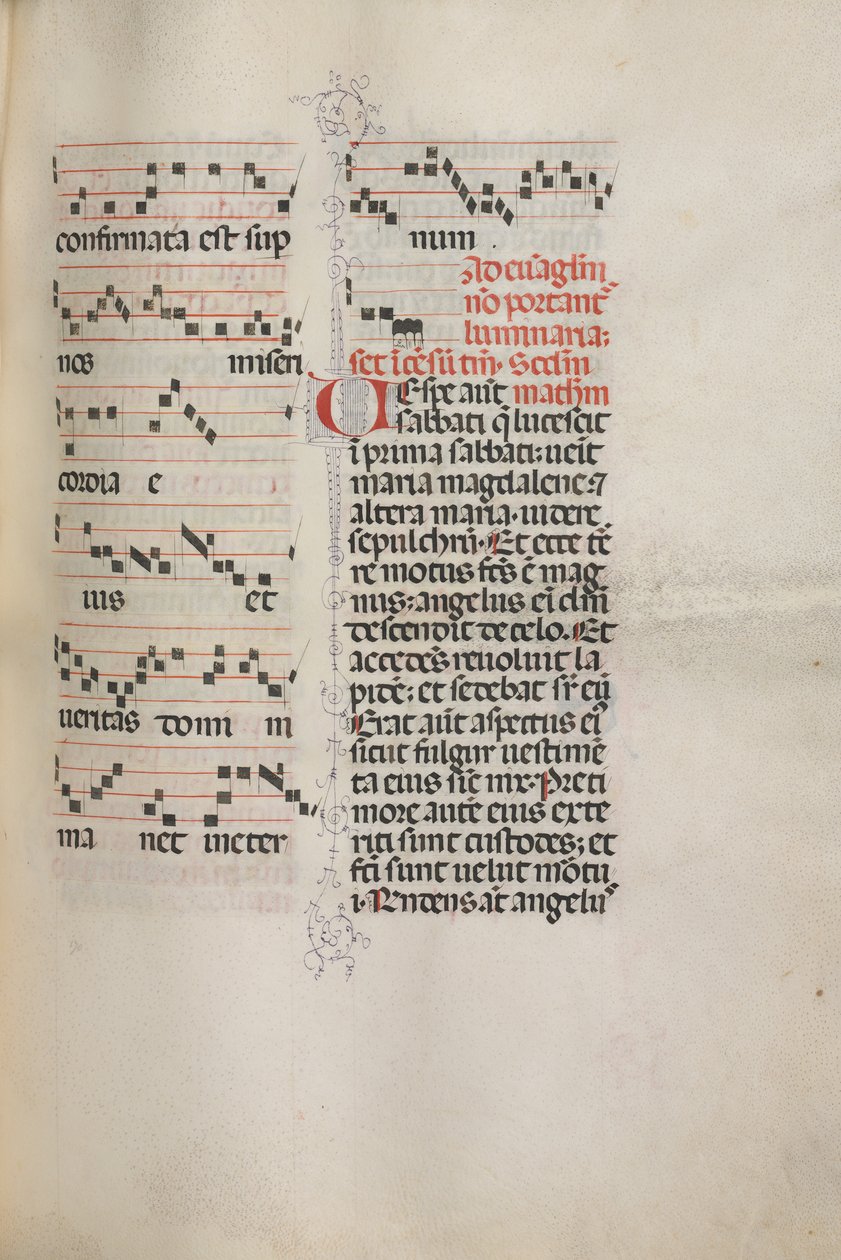 confirmata est sup
nos miseri
cordia e
ius et
ueritas domi ni
ma net ineter
num .
Ad euãgliũ
nõ portant᷑
luminaria:
set ĩcẽsũ tm̃. Scd̃m
Vespe aũt math̃m
sabbati q̃ lucescit
ĩ prima sabbati: ueĩt
maria magdalene: ⁊
altera maria. uidere
sepulchrũ. Et ecce tẽ
re motus fc̃s ẽ mag
nus: angelus ei᷑ dñi
descendit de celo. Et
accedẽs reuoluit la
pidẽ: et sedebat sr̃ eũ
Erat aũt aspectus eiꝰ
sicut fulgur uestimẽ
ta eius sic̃ nix: Pre ti
more autẽ eius exte
riti sunt custodes; et
fc̃i sunt uelut mõtu
i. Rñdens aũt angelꝰ